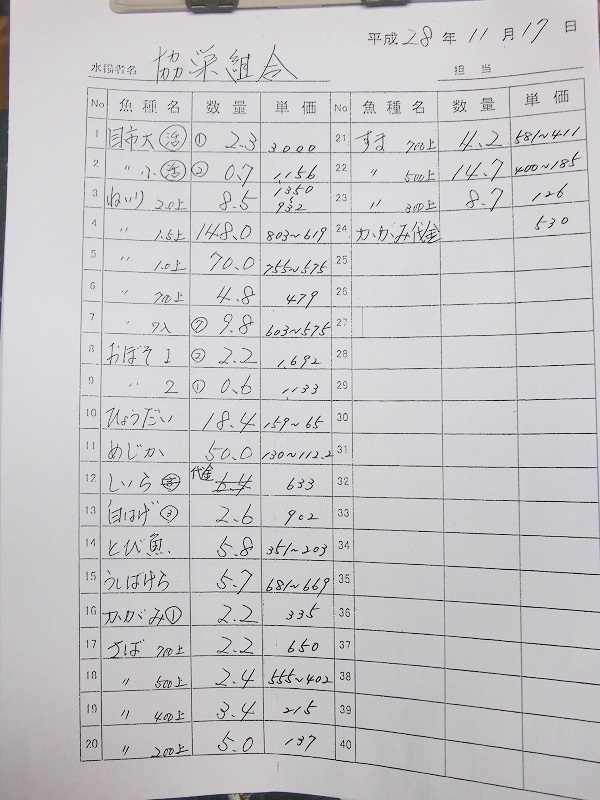 平成 28 年 11 月 17 日
水揚者名 協栄組合 担当
No 魚種名 数量 単価 No 魚種名 数量 単価
1 目市大 活 ① 2.3 3000 21 すま 700上 4.2 581~411
2 〃 小 活 ② 0.7 1,156 22 〃 500上 14.7 400~185
3 ねいり 2.0上 8.5 1350~932 23 〃 300上 8.7 126
4 〃 1.5上 148.0 803~619 24 かがみ代金 530
5 〃 1.0上 70.0 755~575 25
6 〃 700上 4.8 479 26
7 〃 ⑦ 9.8 603~575 27
8 おぼそ 1 ② 2.2 1,692 28
9 〃 2 ① 0.6 1,133 29
10 ひょうだい 18.4 159~65 30
11 めじか 50.0 130~112.2 31
12 しいら 代金 6.4 633 32
13 白はげ ③ 2.6 902 33
14 とび魚 5.8 351~203 34
15 うしばげら 5.7 681~669 35
16 かがみ ① 2.2 335 36
17 さば 700上 2.2 650 37
18 〃 500上 2.4 555~402 38
19 〃 400上 3.4 215 39
20 〃 200上 5.0 137 40